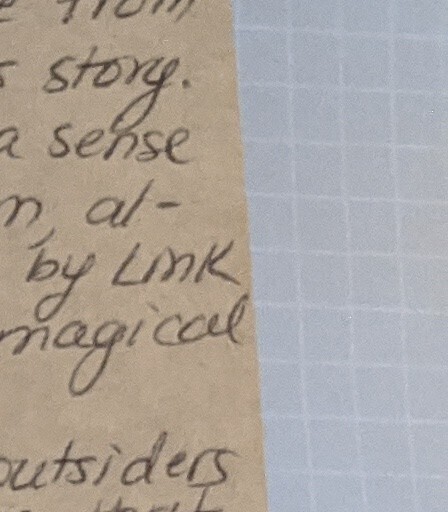 from
story.
a sense
n, al-
by Link
magical
outsiders